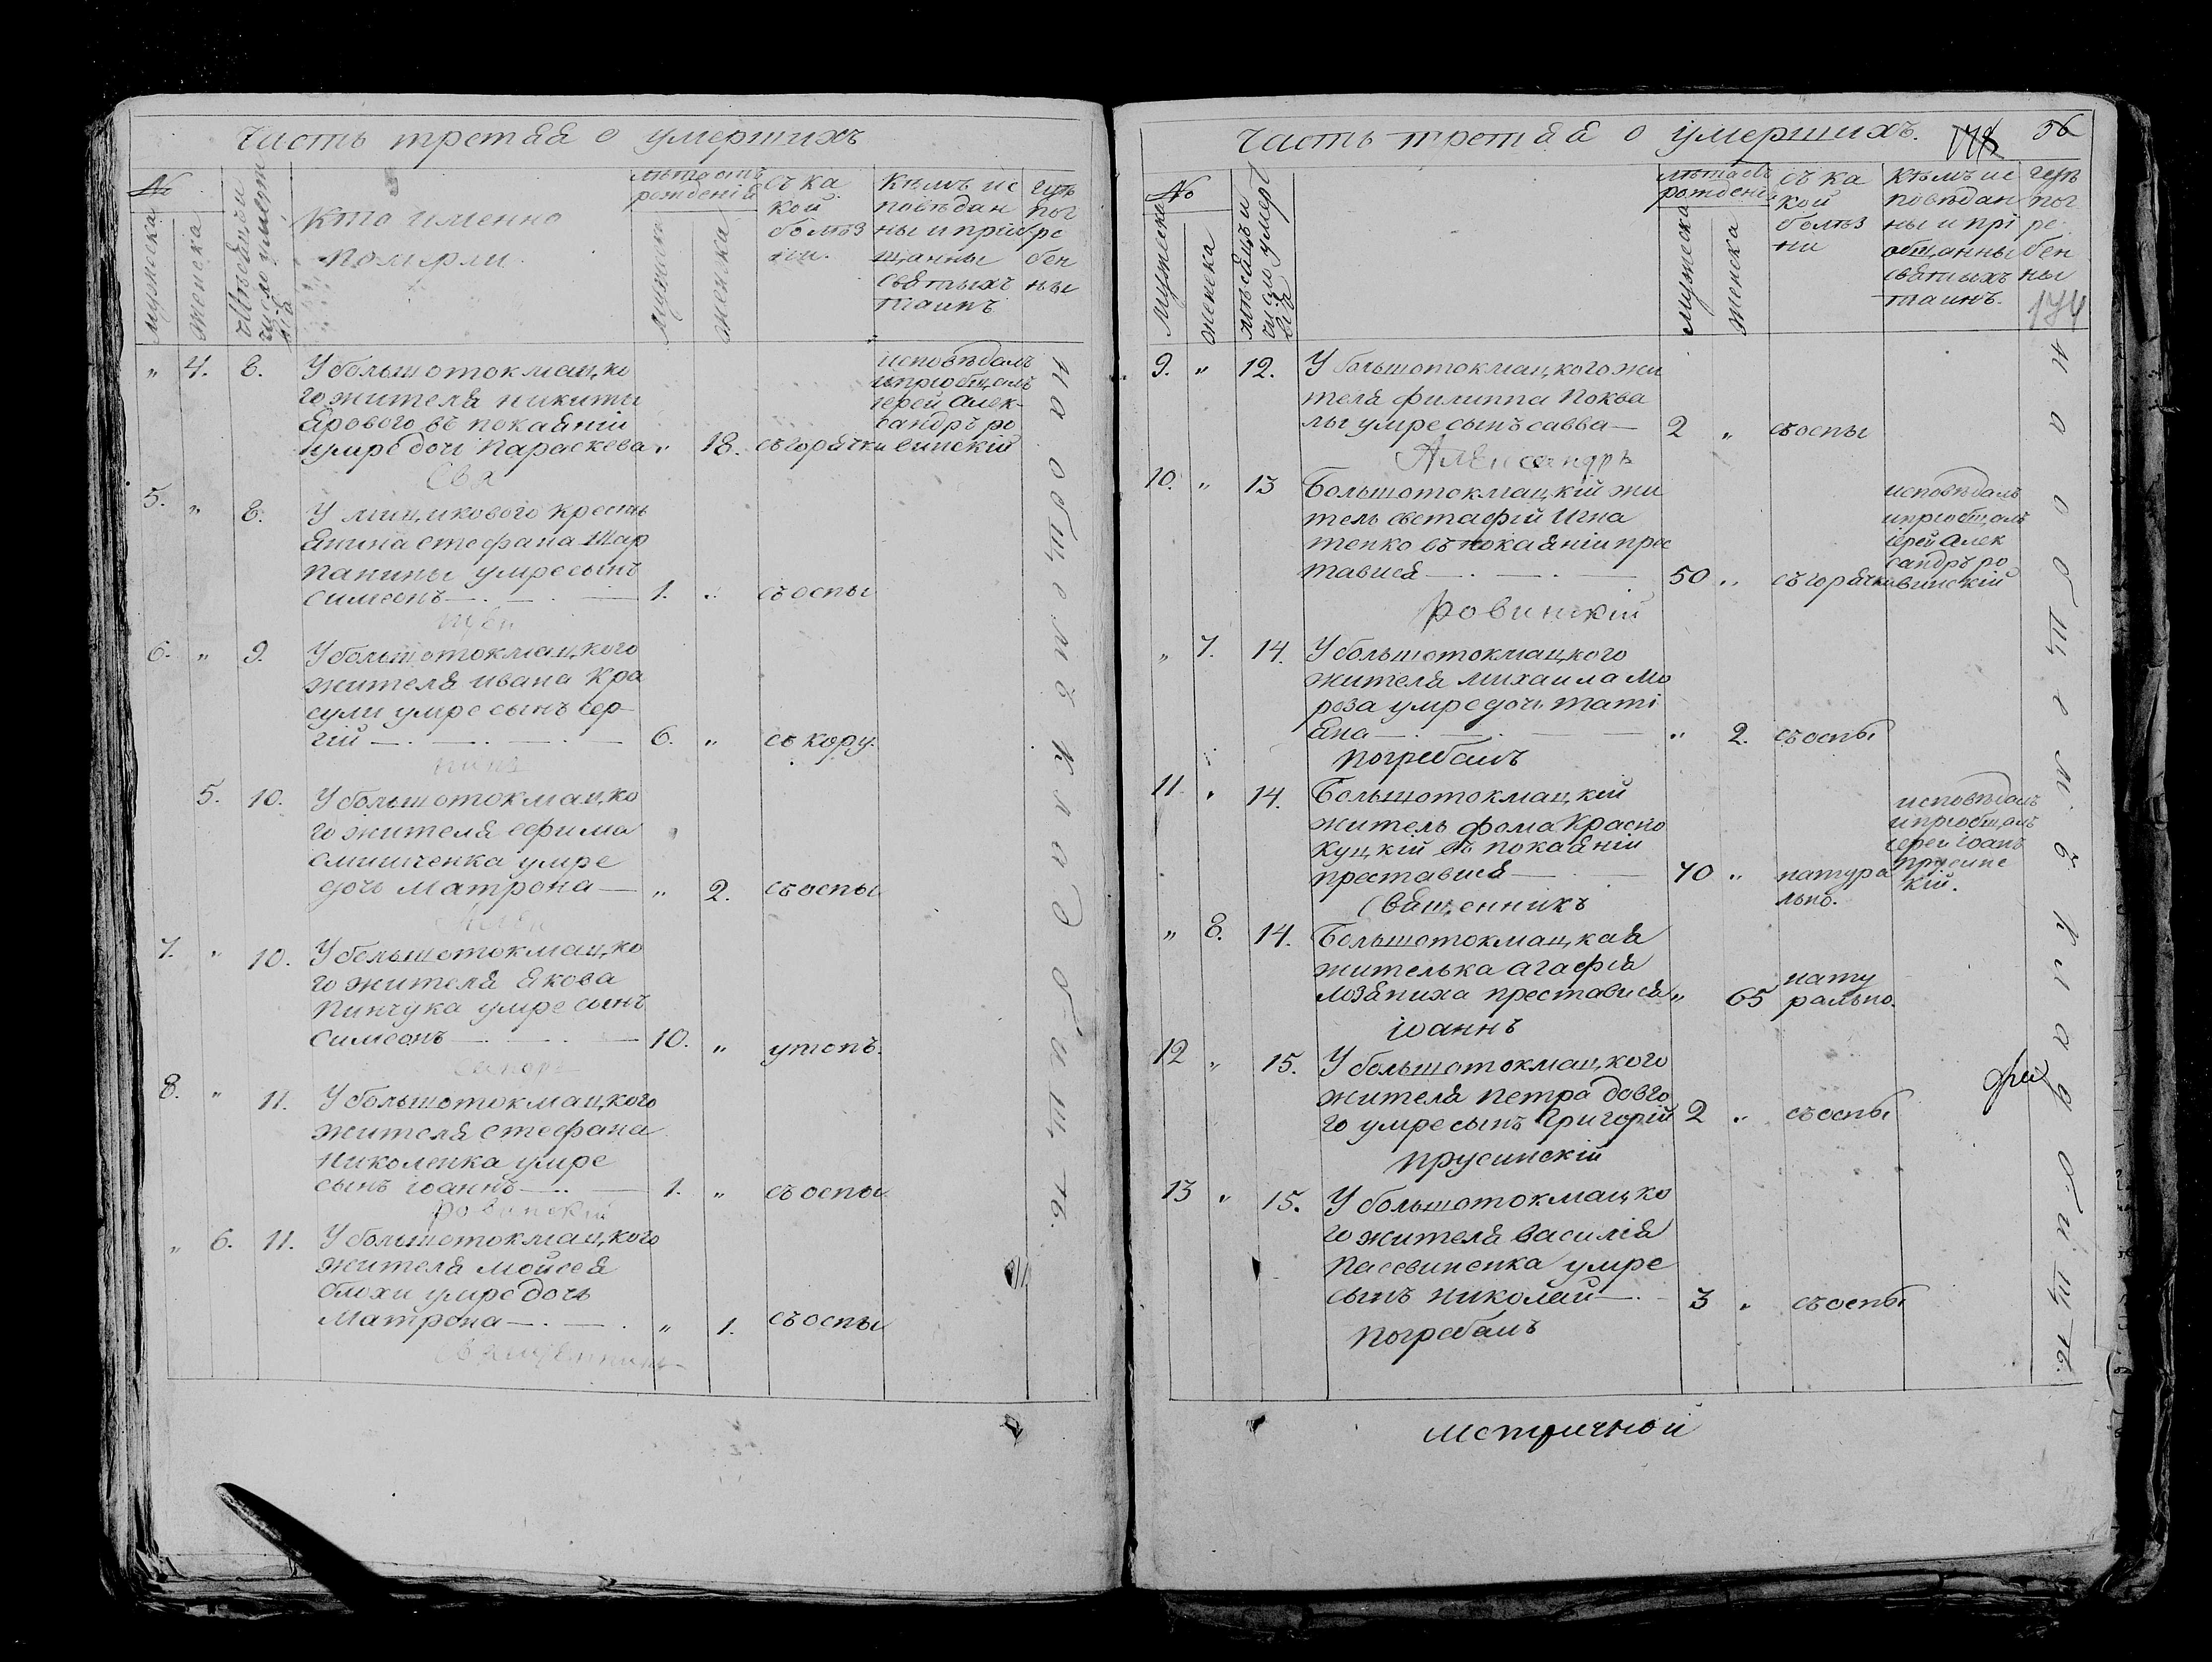 Часть третяя о умершихъ
№
мужеска
женска
Кто именно
померли.
лѣта отъ
рожденія
мужеска
женска
съ ка
кой
болѣз
ни.
Кѣмъ ис
повѣдан
ны и пріоб
щанны
святыхъ
таинъ
гдѣ
пог
ре
бен
ны
" 4. 8. У большотокмацко
го жителя никиты
Ярового въ покаяніи
умре дочь Параскева " 18. съ горячки
исповѣдалъ
и пріобщалъ
іерей Алек
сандръ ро
винскій
5. " 8. У
крестъ
янина стефана Шар
панины умре сынъ
симеонъ 1. " съ оспы
6. " 9. У большотокмацкого
жителя ивана Кра
сули умре сынъ сер
гій 6. " съ кору.
5. 10. У большотокмацко
го жителя ефима
умре
дочь Матрона " 2. съ оспы
7. " 10. У большотокмацко
го жителя якова
Пинчука умре сынъ
Симеонъ 10. " утопъ.
8. " 11. У большотокмацкого
жителя стефана
Николенка умре
сынъ іоаннъ 1. " съ оспы
ровинскій
" 6. 11. У большотокмацкого
жителя мойсея
блохи умре дочь
Матрона " 1. съ оспы
на общемъ кладбищѣ.
Часть третяя о умершихъ. 56
№
мужеска
женска
мѣсяцъ и
число умерт
вія
лѣта отъ
рожденія
мужеска
женска
съ ка
кой
болѣз
ни
Кѣмъ ис
повѣдан
ны и прі
общанны
святыхъ
таинъ.
гдѣ
пог
ре
бен
ны
174
9. " 12. У большотокмацкого жи
теля филиппа Похва
лы умре сынъ савва 2 " съ оспы
Александръ
10. " 13 Большотокмацкій жи
тель евстафій Игна
тенко въ покаяніи прес
тавися 50 " съ горячки
исповѣдалъ
и пріобщалъ
іерей Алек
сандръ ро
винскій
ровинскій
" 7. 14. У большотокмацкого
жителя михаила Мо
роза умре дочь Таті
яна " 2. съ оспы
погребалъ
11. " 14. Большотокмацкій
житель фома Красно
куцкій въ покаяніи
преставися 70 " натура
льно.
исповѣдалъ
и пріобщалъ
іерей іоанъ
прусинс
кій.
Священникъ
" 8. 14. Большотокмацкая
жителька агафія
лозяниха преставися " 65 нату
рально.
іоаннъ
12 " 15. У большотокмацкого
жителя петра довго
го умре сынъ григорій 2 " съ оспы
прусинскій
13 " 15. У большотокмацко
го жителя василія
умре
сынъ николай 3 " съ оспы
погребалъ
на общемъ кладбищѣ.
метричной